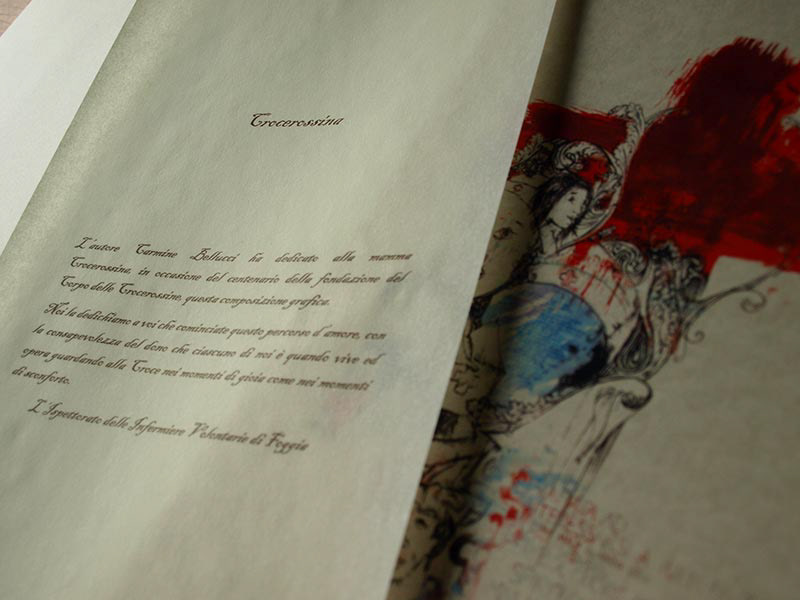 Crocerossina
L'autore Carmine Bellucci ha dedicato alla mamma
Crocerossina, in occasione del centenario della fondazione del
Corpo delle Crocerossine, questa composizione grafica.
Noi la dedichiamo a voi che cominciate questo percorso d'amore, con
la consapevolezza del dono che ciascuno di noi è quando vive ed
opera guardando alla Croce nei momenti di gioia come nei momenti
di sconforto.
L'Ispettorato delle Infermiere Volontarie di Foggia